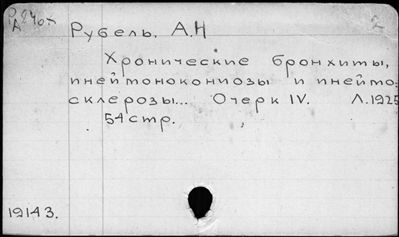 2
Рубель, А.Н
Хронические бронхиты,
пнеймонокониозы и пнеймо-
склерозы... Очерк IV. Л.1925
54 стр.
19143.